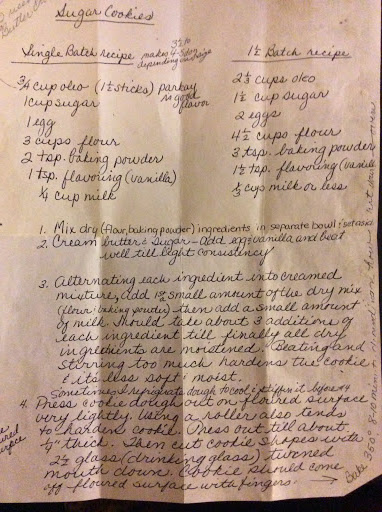 Sugar Cookies
Single Batch recipe
makes 3½ to 4 doz
depending on size
¾ cup oleo (1½ sticks) parkay
is good
flavor
1 cup sugar
1 egg
3 cups flour
2 tsp. baking powder
1 tsp. flavoring (vanilla)
¼ cup milk
1½ Batch recipe
cups oleo
1½ cup sugar
2 eggs
4½ cups flour
3 tsp. baking powder
1½ tsp. flavoring (vanilla
cup milk or less
1. Mix dry (flour, baking powder) ingredients in separate bowl & set aside
2. Cream butter & sugar - add egg & vanilla and beat
well till light consistency
3. Alternating each ingredient into creamed
mixture, add 1st small amount of the dry mix
(flour & baking powder) then add a small amount
of milk. Should take about 3 additions of
each ingredient till finally all dry
ingredients are moistened. Beating and
stirring too much hardens the cookie
& its less soft & moist.
Sometimes I refrigerate dough to cool & stiffen it before #4
4. Press cookie dough out on floured surface
very lightly. Using a roller also tends
to harden cookie. Press out till about
¼" thick. Then cut cookie shapes with
2½ glass (drinking glass) turned
mouth down. Cookie should come
off floured surface with fingers. →
Bake 350° 8-10 min.